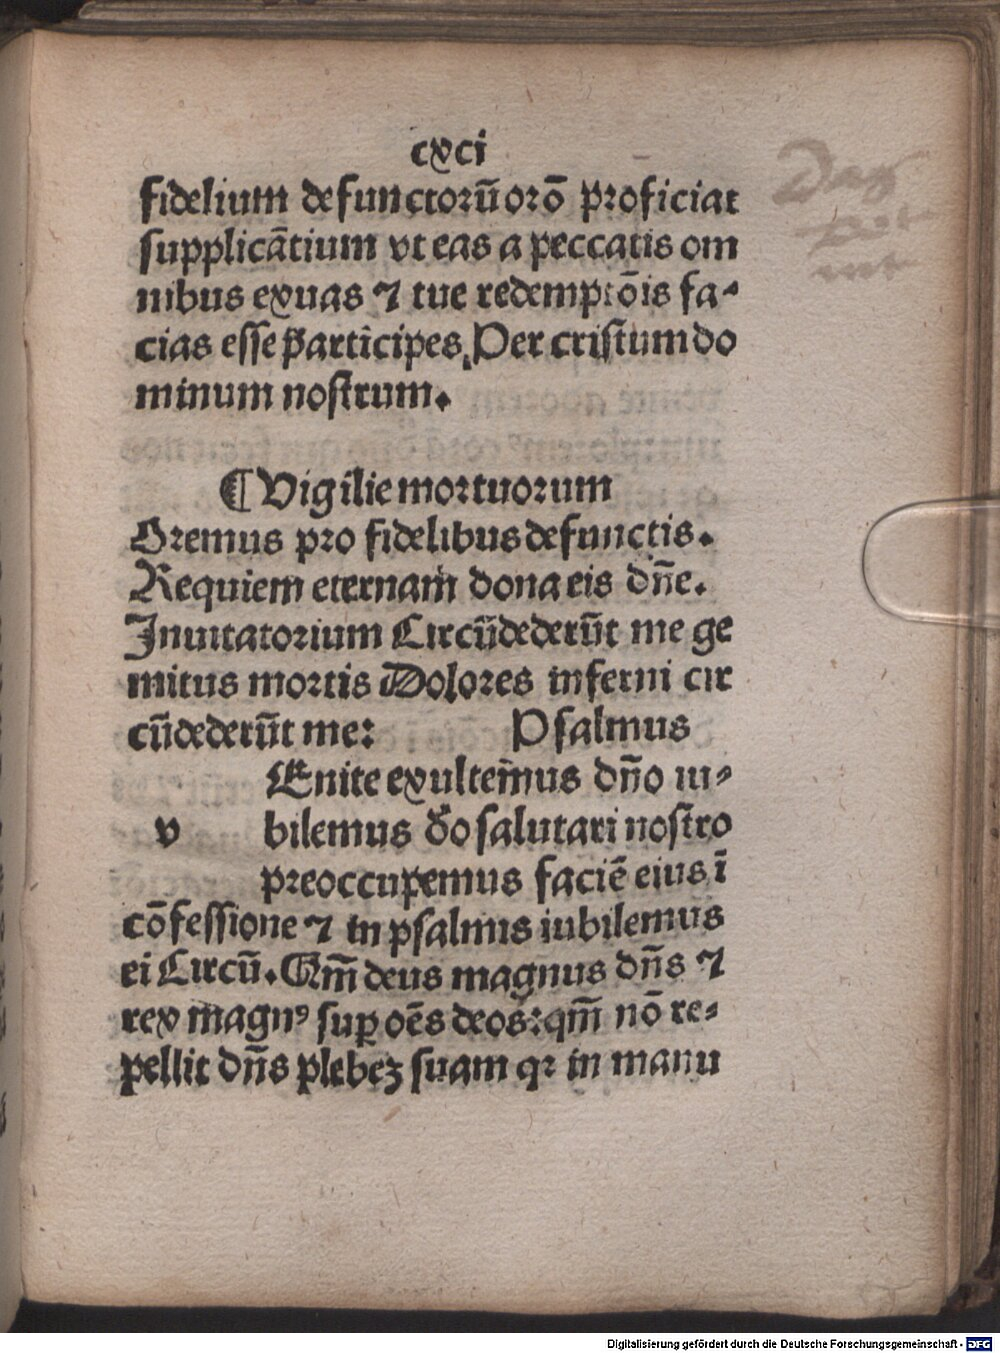 cxci
fidelium defunctorū orō proficiat
supplicātium vt eas a peccatis om
nibus exuas ⁊ tue redemptōis fa-
cias esse ꝑarticipes. Per cristum do
minum nostrum.
¶ Vigilie mortuorum
Oremus pro fidelibus defunctis.
Requiem eternam dona eis dn̄e.
Inuitatorium Circūdederūt me ge
mitus mortis Dolores inferni cir
cūdederūt me: Psalmus
Enite exultemus dn̄o iu-
v bilemus deo salutari nostro
preoccupemus faciē eius ī
cōfessione ⁊ in psalmis iubilemus
ei Circū. Qm̄ deus magnus dn̄s ⁊
rex magnꝰ suꝑ oēs deos: qm̄ nō re-
pellit dn̄s plebeȝ suam qꝛ in manu
Digitalisierung gefördert durch die Deutsche Forschungsgemeinschaft - DFG